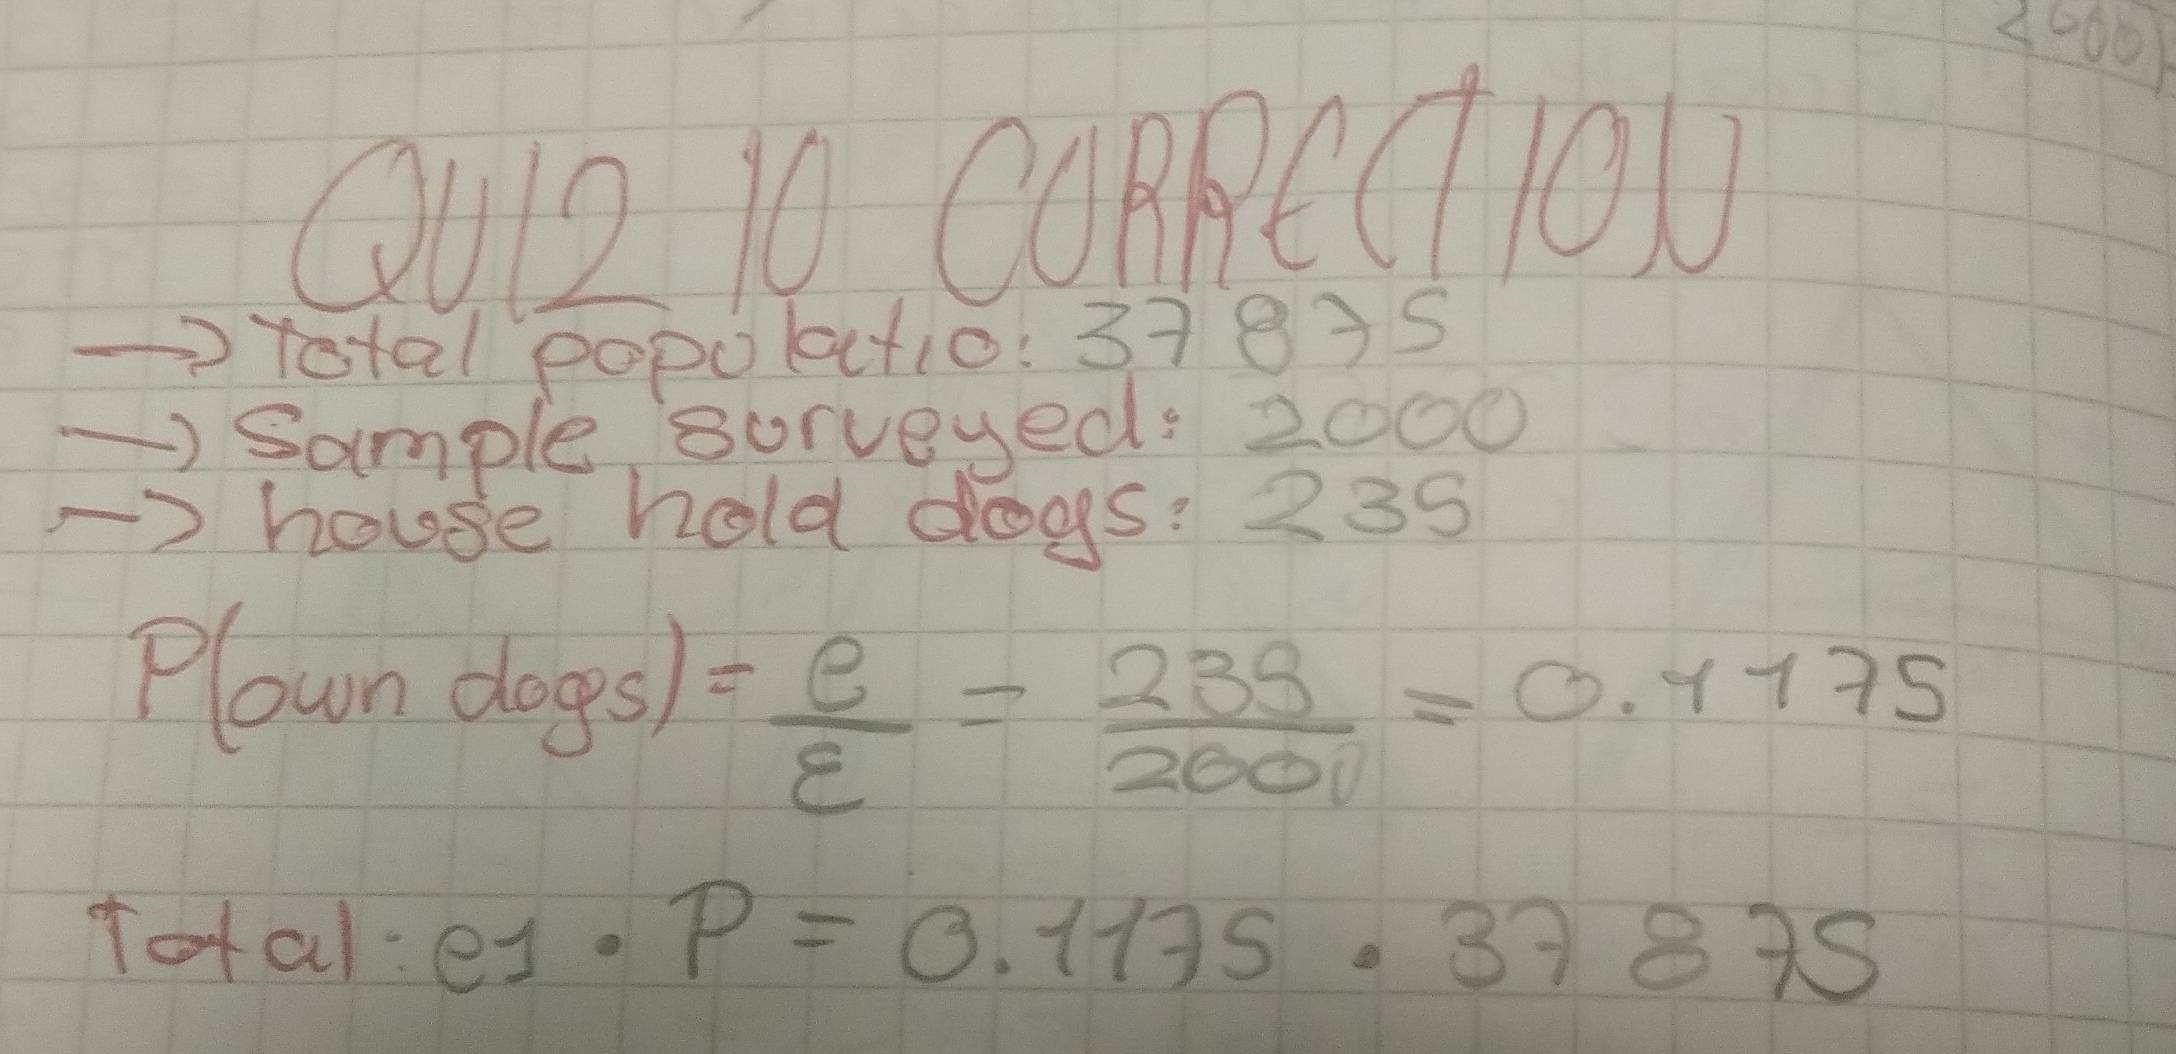 2000
QUIZ 10 CORRECTION
→ Total populatio: 37 875
→ Sample surveyed: 2000
→ house hold dogs: 235
P(own dogs) = e/ε = 235/2000 = 0.1175
Total: e1 · P = 0.1175 · 37 875